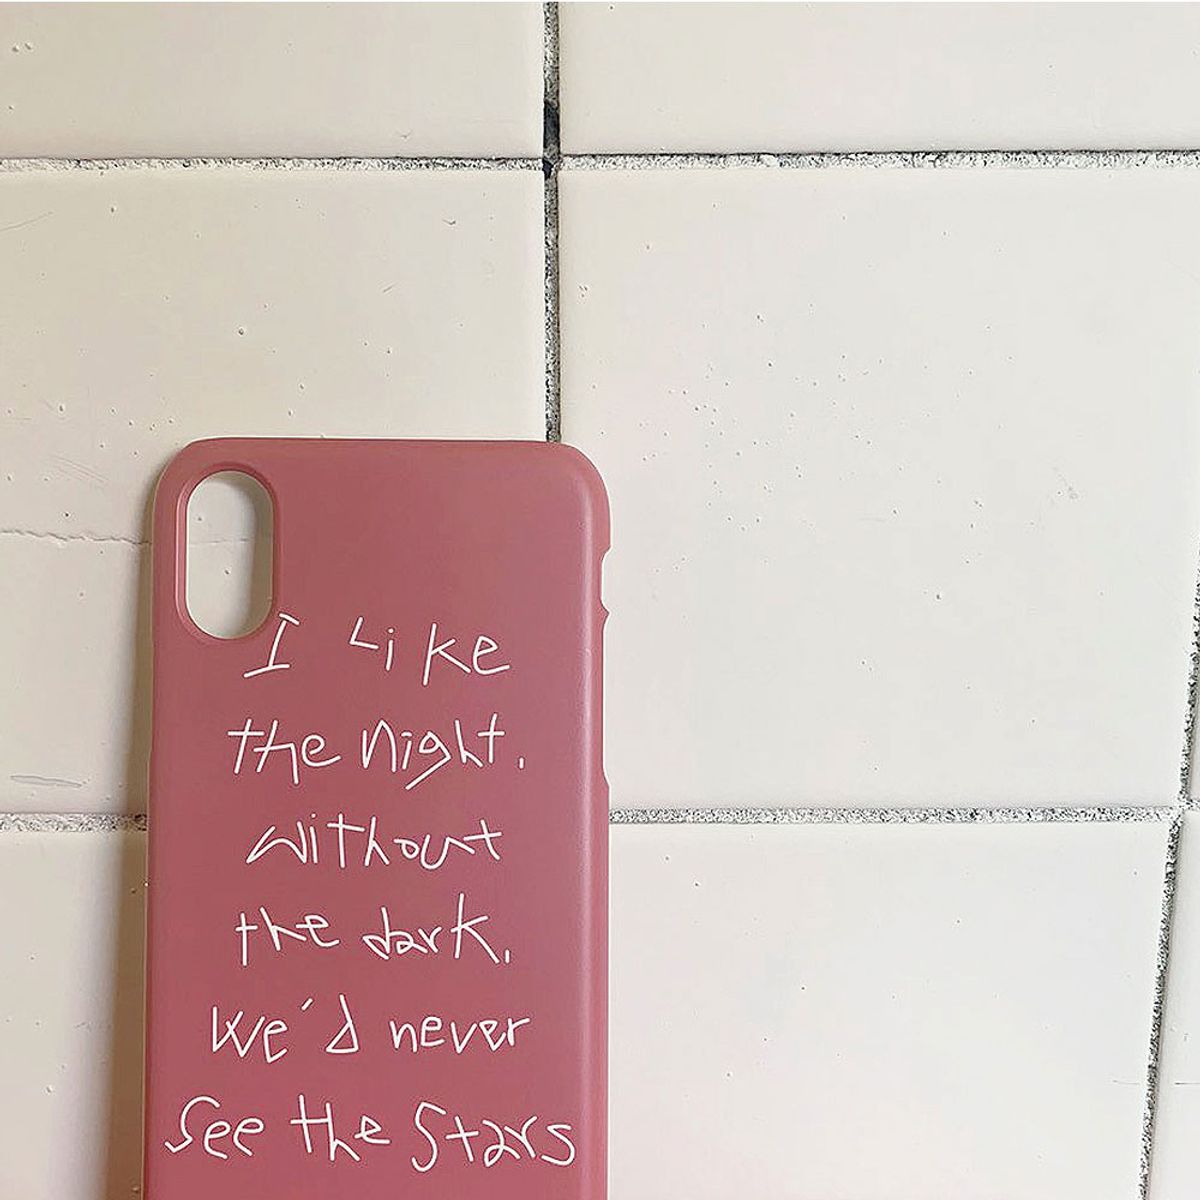 I Like
the night.
without
the dark,
We'd never
See the Stars